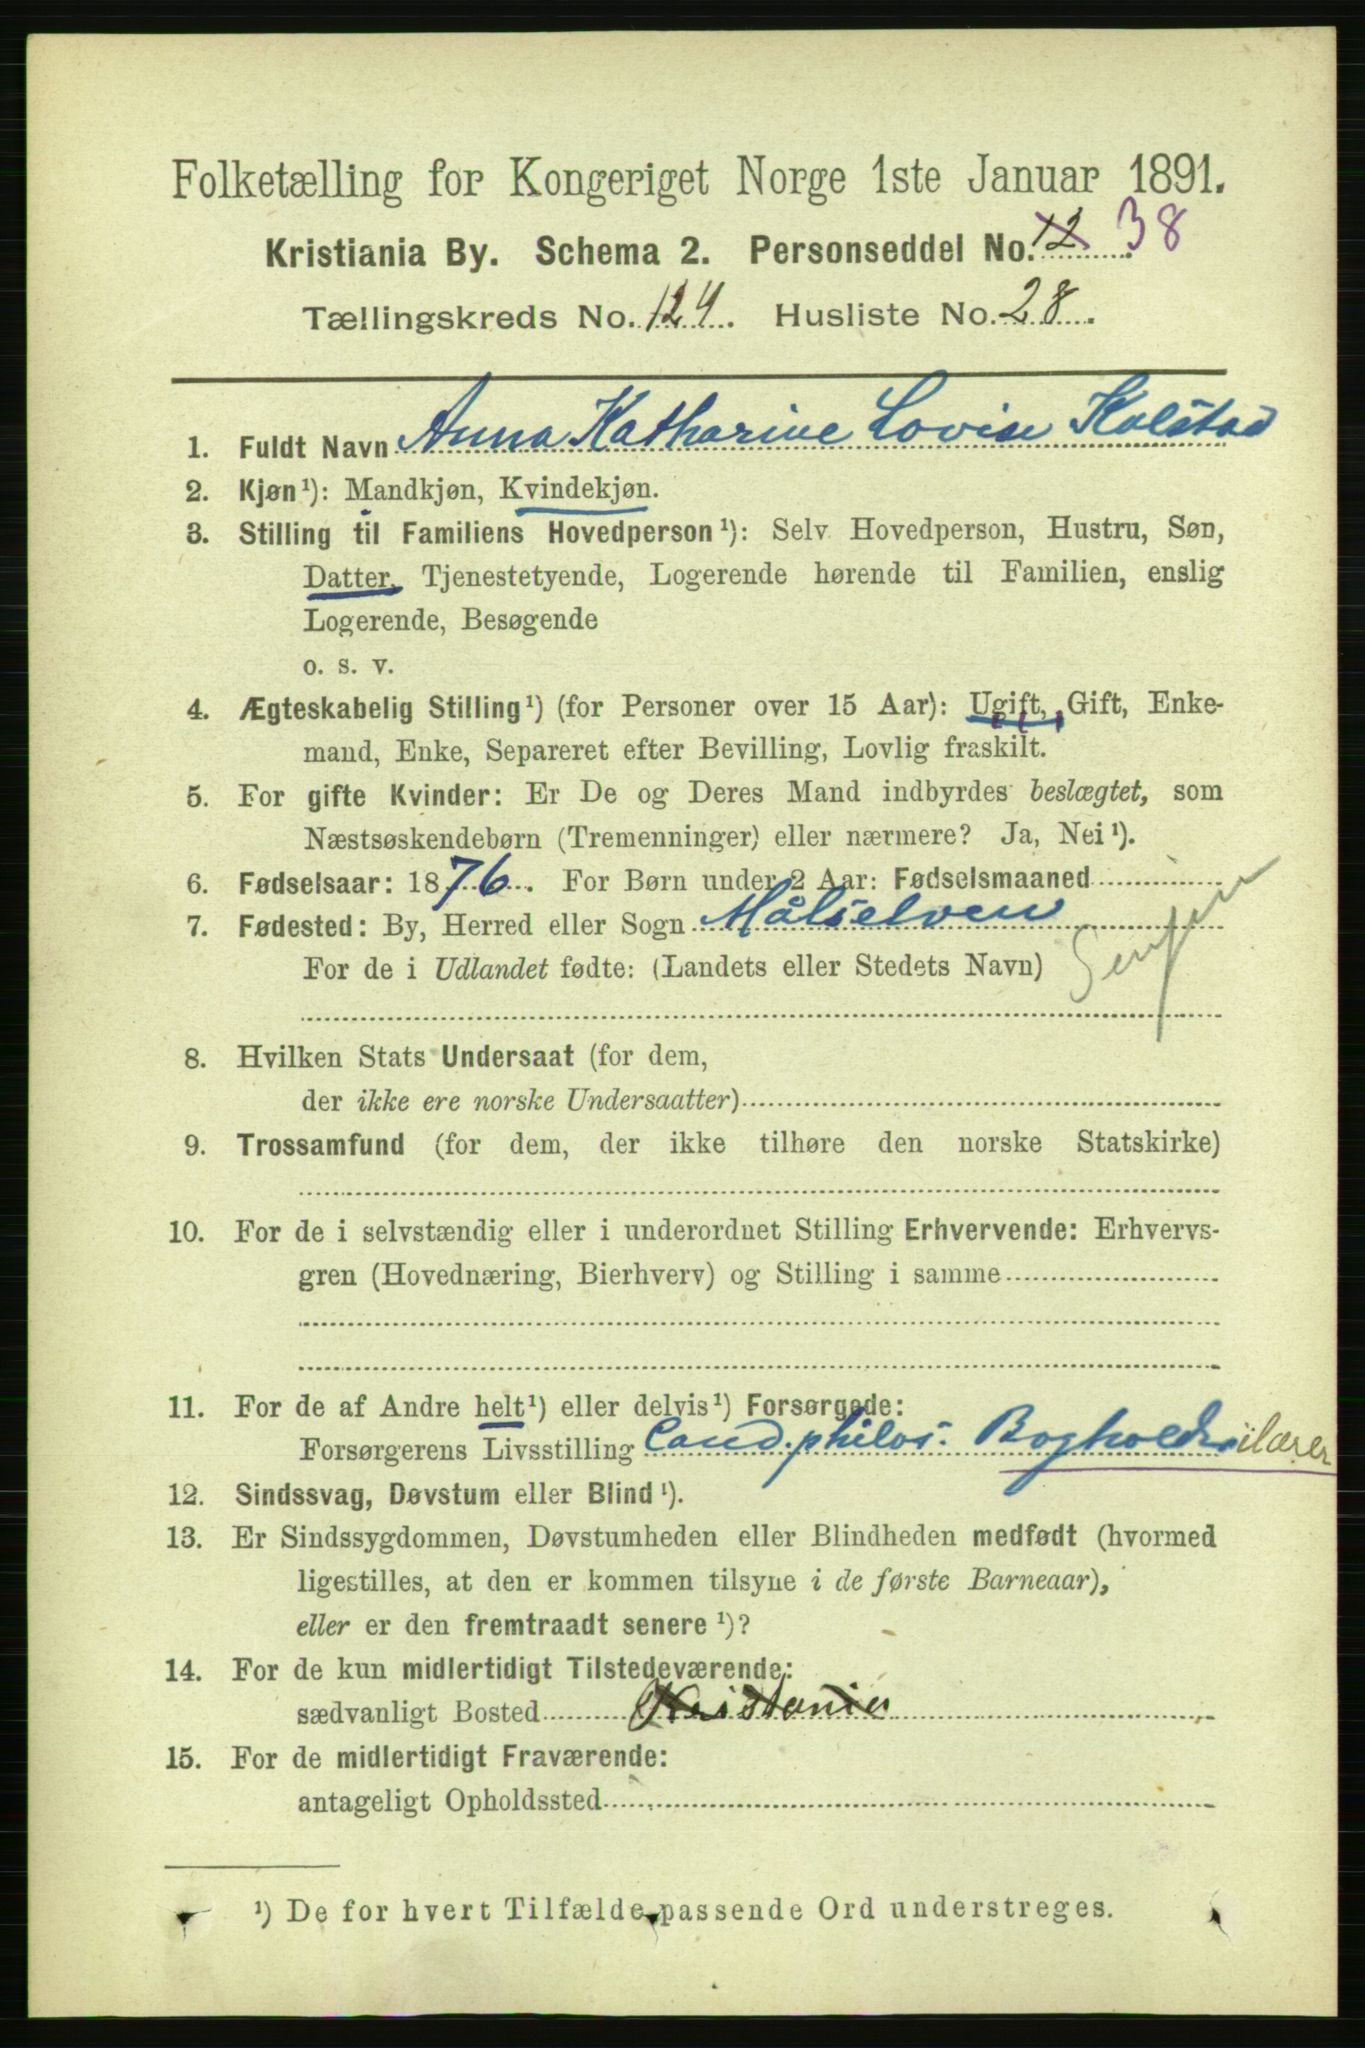 Folketælling for Kongeriget Norge 1ste Januar 1891.
Kristiania By. Schema 2. Personseddel No. 12 38
Tællingskreds No. 124. Husliste No. 28.
1. Fuldt Navn Anna Katharine Lovise Kolstad
2. Kjøn ¹): Mandkjøn, Kvindekjøn.
3. Stilling til Familiens Hovedperson ¹): Selv Hovedperson, Hustru, Søn,
Datter, Tjenestetyende, Logerende hørende til Familien, enslig
Logerende, Besøgende
o. s. v.
4. Ægteskabelig Stilling ¹) (for Personer over 15 Aar): Ugift, Gift, Enke-
mand, Enke, Separeret efter Bevilling, Lovlig fraskilt.
5. For gifte Kvinder: Er De og Deres Mand indbyrdes beslægtet, som
Næstsøskendebørn (Tremenninger) eller nærmere? Ja, Nei ¹).
6. Fødselsaar: 1876. For Børn under 2 Aar: Fødselsmaaned
7. Fødested: By, Herred eller Sogn Målselven
Senjen
For de i Udlandet fødte: (Landets eller Stedets Navn)
8. Hvilken Stats Undersaat (for dem,
der ikke ere norske Undersaatter)
9. Trossamfund (for dem, der ikke tilhøre den norske Statskirke)
10. For de i selvstændig eller i underordnet Stilling Erhvervende: Erhvervs-
gren (Hovednæring, Bierhverv) og Stilling i samme
11. For de af Andre helt ¹) eller delvis ¹) Forsørgede:
Forsørgerens Livsstilling Cand. philos. Bogholderilærer
12. Sindssvag, Døvstum eller Blind ¹).
13. Er Sindssygdommen, Døvstumheden eller Blindheden medfødt (hvormed
ligestilles, at den er kommen tilsyne i de første Barneaar),
eller er den fremtraadt senere ¹)?
14. For de kun midlertidigt Tilstedeværende:
sædvanligt Bosted Kristania
15. For de midlertidigt Fraværende:
antageligt Opholdssted
¹) De for hvert Tilfælde passende Ord understreges.